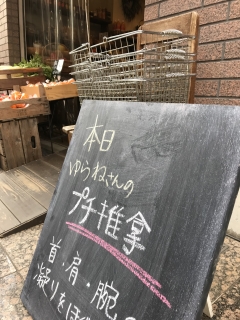 本日
ゆらねさんの
プチ推拿
首・肩・腕の
凝りをほ